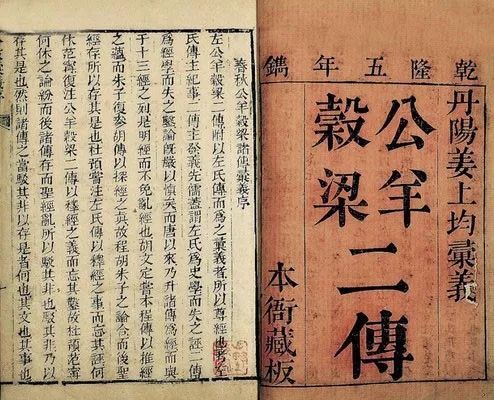 乾隆五年鐫
丹陽姜上均彙義
公羊
穀梁
二傳
本衙藏板
春秋公羊穀梁諸傳彙義序
左公羊穀梁二傳附以左氏傳而爲之彙義者所以尊經也
左氏傳主紀事二傳主發義先儒蓋謂左氏爲史學而失之誣二傳
爲經學而失之鑿論既嚴以慎矣而唐以來乃升諸傳爲經而與
于十三經之列是明經而不免亂經也胡文定嘗本程傳以推經
之蘊而朱子復參胡傳以採經之真故程胡朱子之論合而後聖
經存所以存其是也杜預嘗注左氏傳以釋經之事而忘其誣何
休范甯復注公羊穀梁二傳以釋經之義而忘其鑿故杜預范甯
何休之論紛而後諸傳存而聖經亂所以駁其非也駁其非乃
存其是也然則諸傳之當駁其非以存是者何也其文也其事也